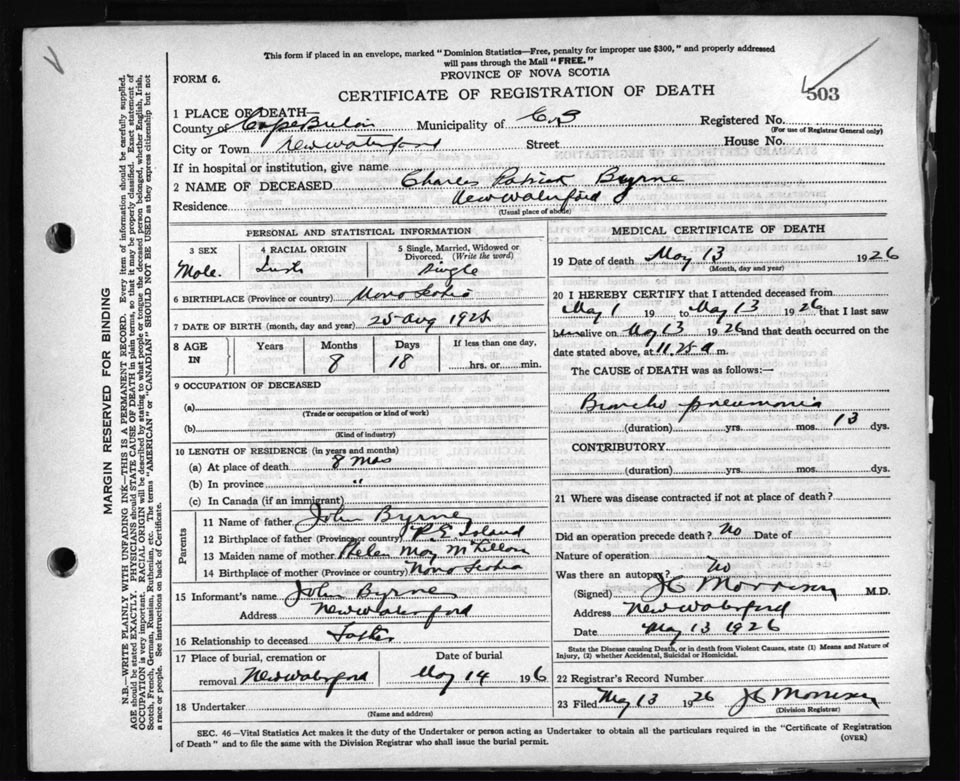 This form if placed in an envelope, marked "Dominion Statistics—Free, penalty for improper use $300," and properly addressed
will pass through the Mail "FREE."
PROVINCE OF NOVA SCOTIA
FORM 6.
CERTIFICATE OF REGISTRATION OF DEATH
503
MARGIN RESERVED FOR BINDING
N.B.—WRITE PLAINLY WITH UNFADING INK—THIS IS A PERMANENT RECORD. Every item of information should be carefully supplied.
AGE should be stated EXACTLY. PHYSICIANS should STATE CAUSE OF DEATH in plain terms, so that it may be properly classified. Exact statement of
OCCUPATION is very important. RACIAL ORIGIN will be described by stating to what people or tongue the deceased person belonged, whether English, Irish,
Scotch, French, German, Russian, Ruthenian, etc. The terms "AMERICAN" or "CANADIAN" SHOULD NOT BE USED as they express citizenship but not
a race or people. See instructions on back of Certificate.
1 PLACE OF DEATH—
County of Cape Breton Municipality of C.B Registered No.
(For use of Registrar General only)
City or Town New Waterford Street House No.
If in hospital or institution, give name
2 NAME OF DECEASED Charles Patrick Byrne
Residence New Waterford
(Usual place of abode)
PERSONAL AND STATISTICAL INFORMATION
3 SEX 4 RACIAL ORIGIN 5 Single, Married, Widowed or
Divorced. (Write the word)
Male. Irish Single
6 BIRTHPLACE (Province or country) Nova Scotia
7 DATE OF BIRTH (month, day and year) 25 Aug 1925
8 AGE IN Years Months Days If less than one day,
8 18 hrs. or min.
9 OCCUPATION OF DECEASED
(a)
(Trade or occupation or kind of work)
(b)
(Kind of industry)
10 LENGTH OF RESIDENCE (in years and months)
(a) At place of death 8 mos
(b) In province "
(c) In Canada (if an immigrant)
Parents
11 Name of father John Byrne
12 Birthplace of father (Province or country) P.E Island
13 Maiden name of mother May
14 Birthplace of mother (Province or country) Nova Scotia
15 Informant's name John Byrne
Address New Waterford
16 Relationship to deceased Father
17 Place of burial, cremation or Date of burial
removal New Waterford May 14 1926
18 Undertaker
(Name and address)
MEDICAL CERTIFICATE OF DEATH
19 Date of death May 13 1926
(Month, day and year)
20 I HEREBY CERTIFY that I attended deceased from
May 1 19 to May 13 1926 that I last saw
h alive on May 13 1926 and that death occurred on
date stated above, at 11.25 a m.
The CAUSE of DEATH was as follows:—
Broncho pneumonia
(duration) yrs. mos. 13 dys.
CONTRIBUTORY
(duration) yrs. mos. dys.
21 Where was disease contracted if not at place of death?
Did an operation precede death? No Date of
Nature of operation
Was there an autopsy? No
(Signed) J C Morrison M.D.
Address New Waterford
Date May 13 1926
State the Disease causing Death, or in death from Violent Causes, state (1) Means and Nature of
Injury, (2) whether Accidental, Suicidal or Homicidal.
22 Registrar's Record Number
23 Filed May 13 1926 J C Morrison
(Division Registrar)
SEC. 46—Vital Statistics Act makes it the duty of the Undertaker or person acting as Undertaker to obtain all the particulars required in the "Certificate of Registration
of Death" and to file the same with the Division Registrar who shall issue the burial permit.
(OVER)